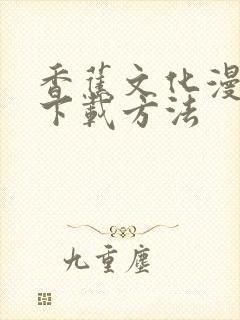 香蕉文化漫
下载方法
九重尘